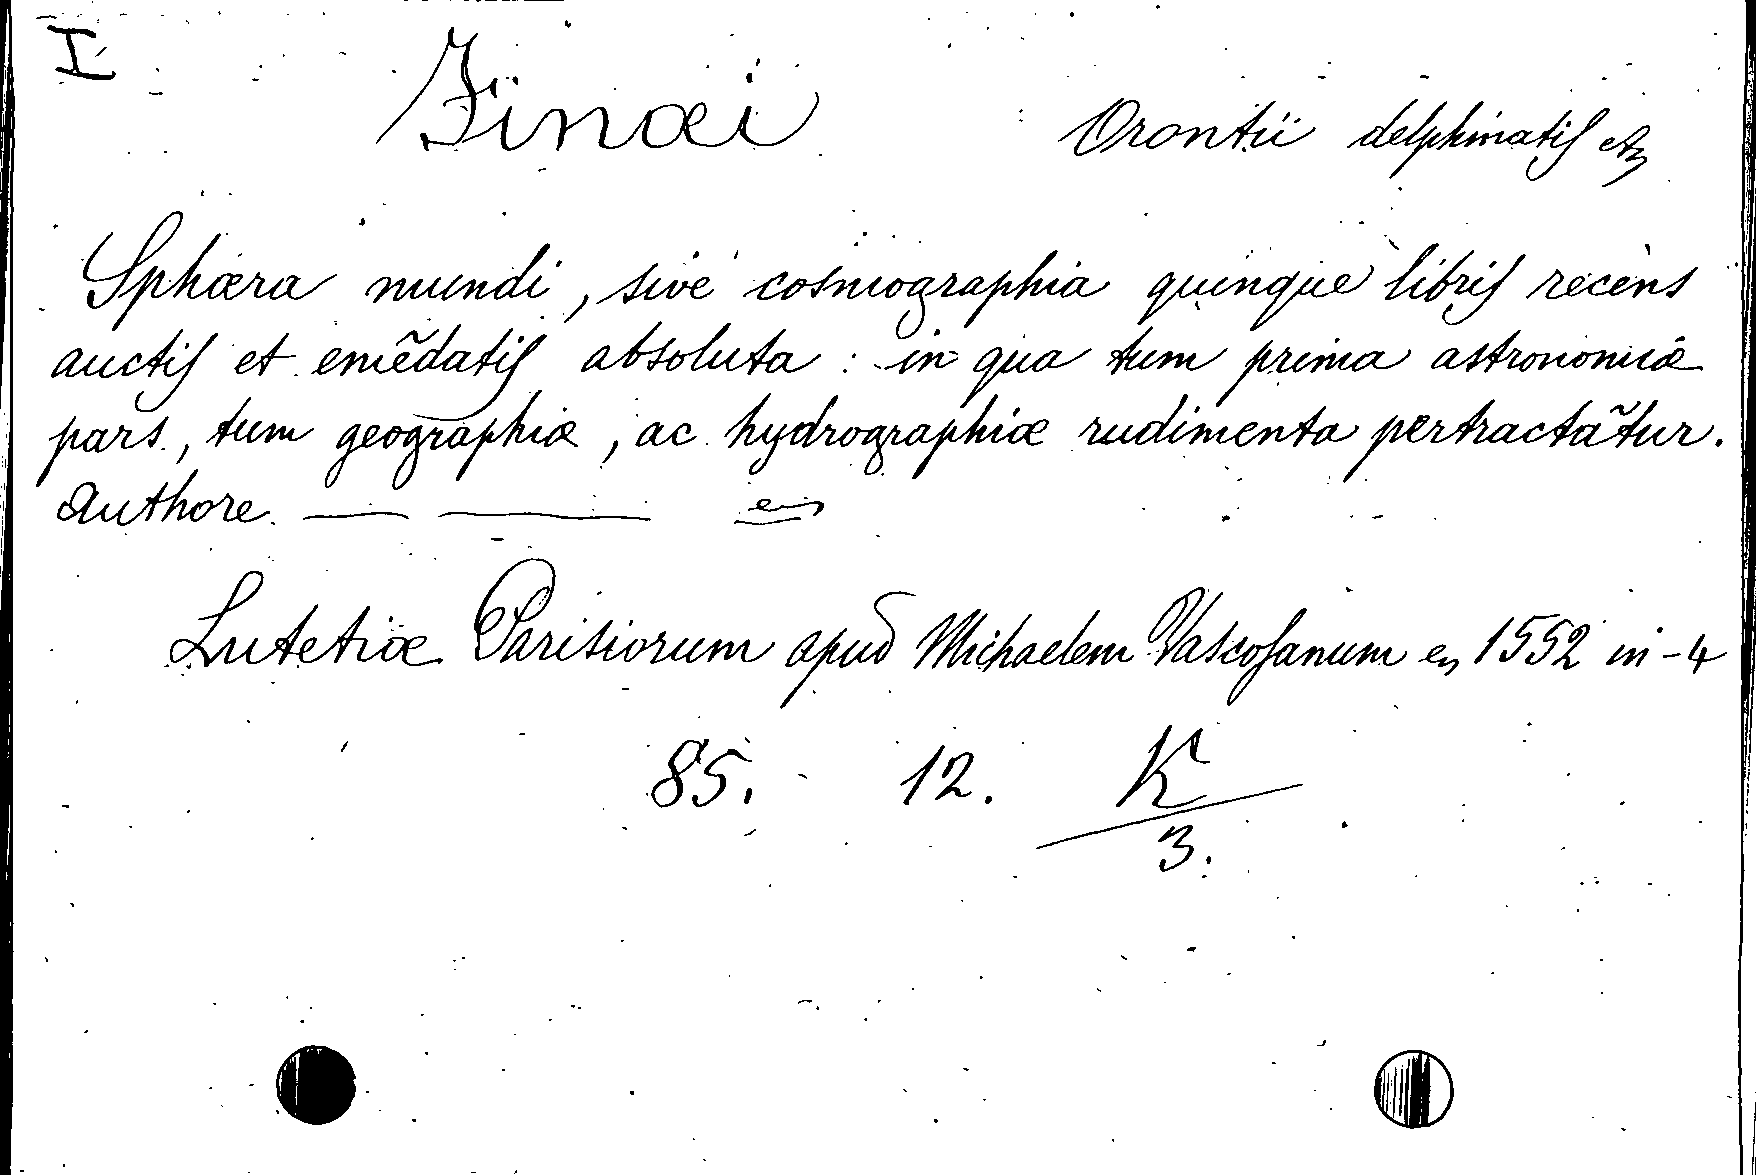 I
Finæi Orontii delphinatis etz
Sphæra mundi, sive cosmographia quinque libris recèns
auctis et emẽdatis absoluta : in qua tum prima astronomiæ
pars, tum geographiæ, ac hydrographiæ rudimenta pertractãtur.
Authore — —
Lutetiæ Parisiorum apud Michaelem Vascosanum en 1552 in-4
85. 12. K
3.